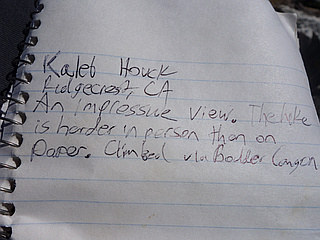 Kaleb Houck
Ridgecrest, CA
An impressive view. The hike
is harder in person than on
Paper. Climbed via Boulder Canyon